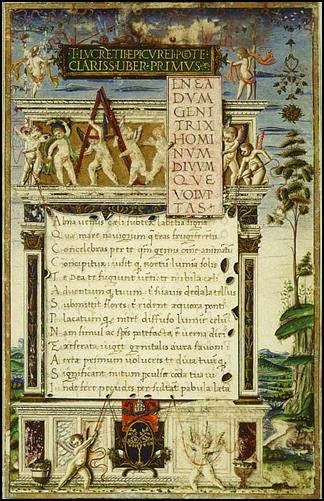 T·LVCRETII·EPICVREI·POTE·
CLARISS·LIBER·PRIMVS·
A
ENEA
DVM
GENI
TRIX
HOMI
NVM
DIVVM
QVE
VOLVP
TAS
Alma venus cæli subter labentia signa
Quæ mare navigerum quæ terras frugiferentis
Concelebras per te qm genus omne animantum
Concipitur visitq exortum lumina solis
Te dea te fugiunt venti te nubila cæli
Adventumq tuum tibi suavis dedala tellus
Submittit flores tibi rident æquora ponti
Placatumq nitet diffuso lumine celum
Nam simul ac species patefacta e verna diei
Et reserata viget genitalis aura favoni
Aeriæ primum volucres te diva tuumq
Significant initum perculsæ corda tua vi
Inde fere pecudes persultant pabula læta